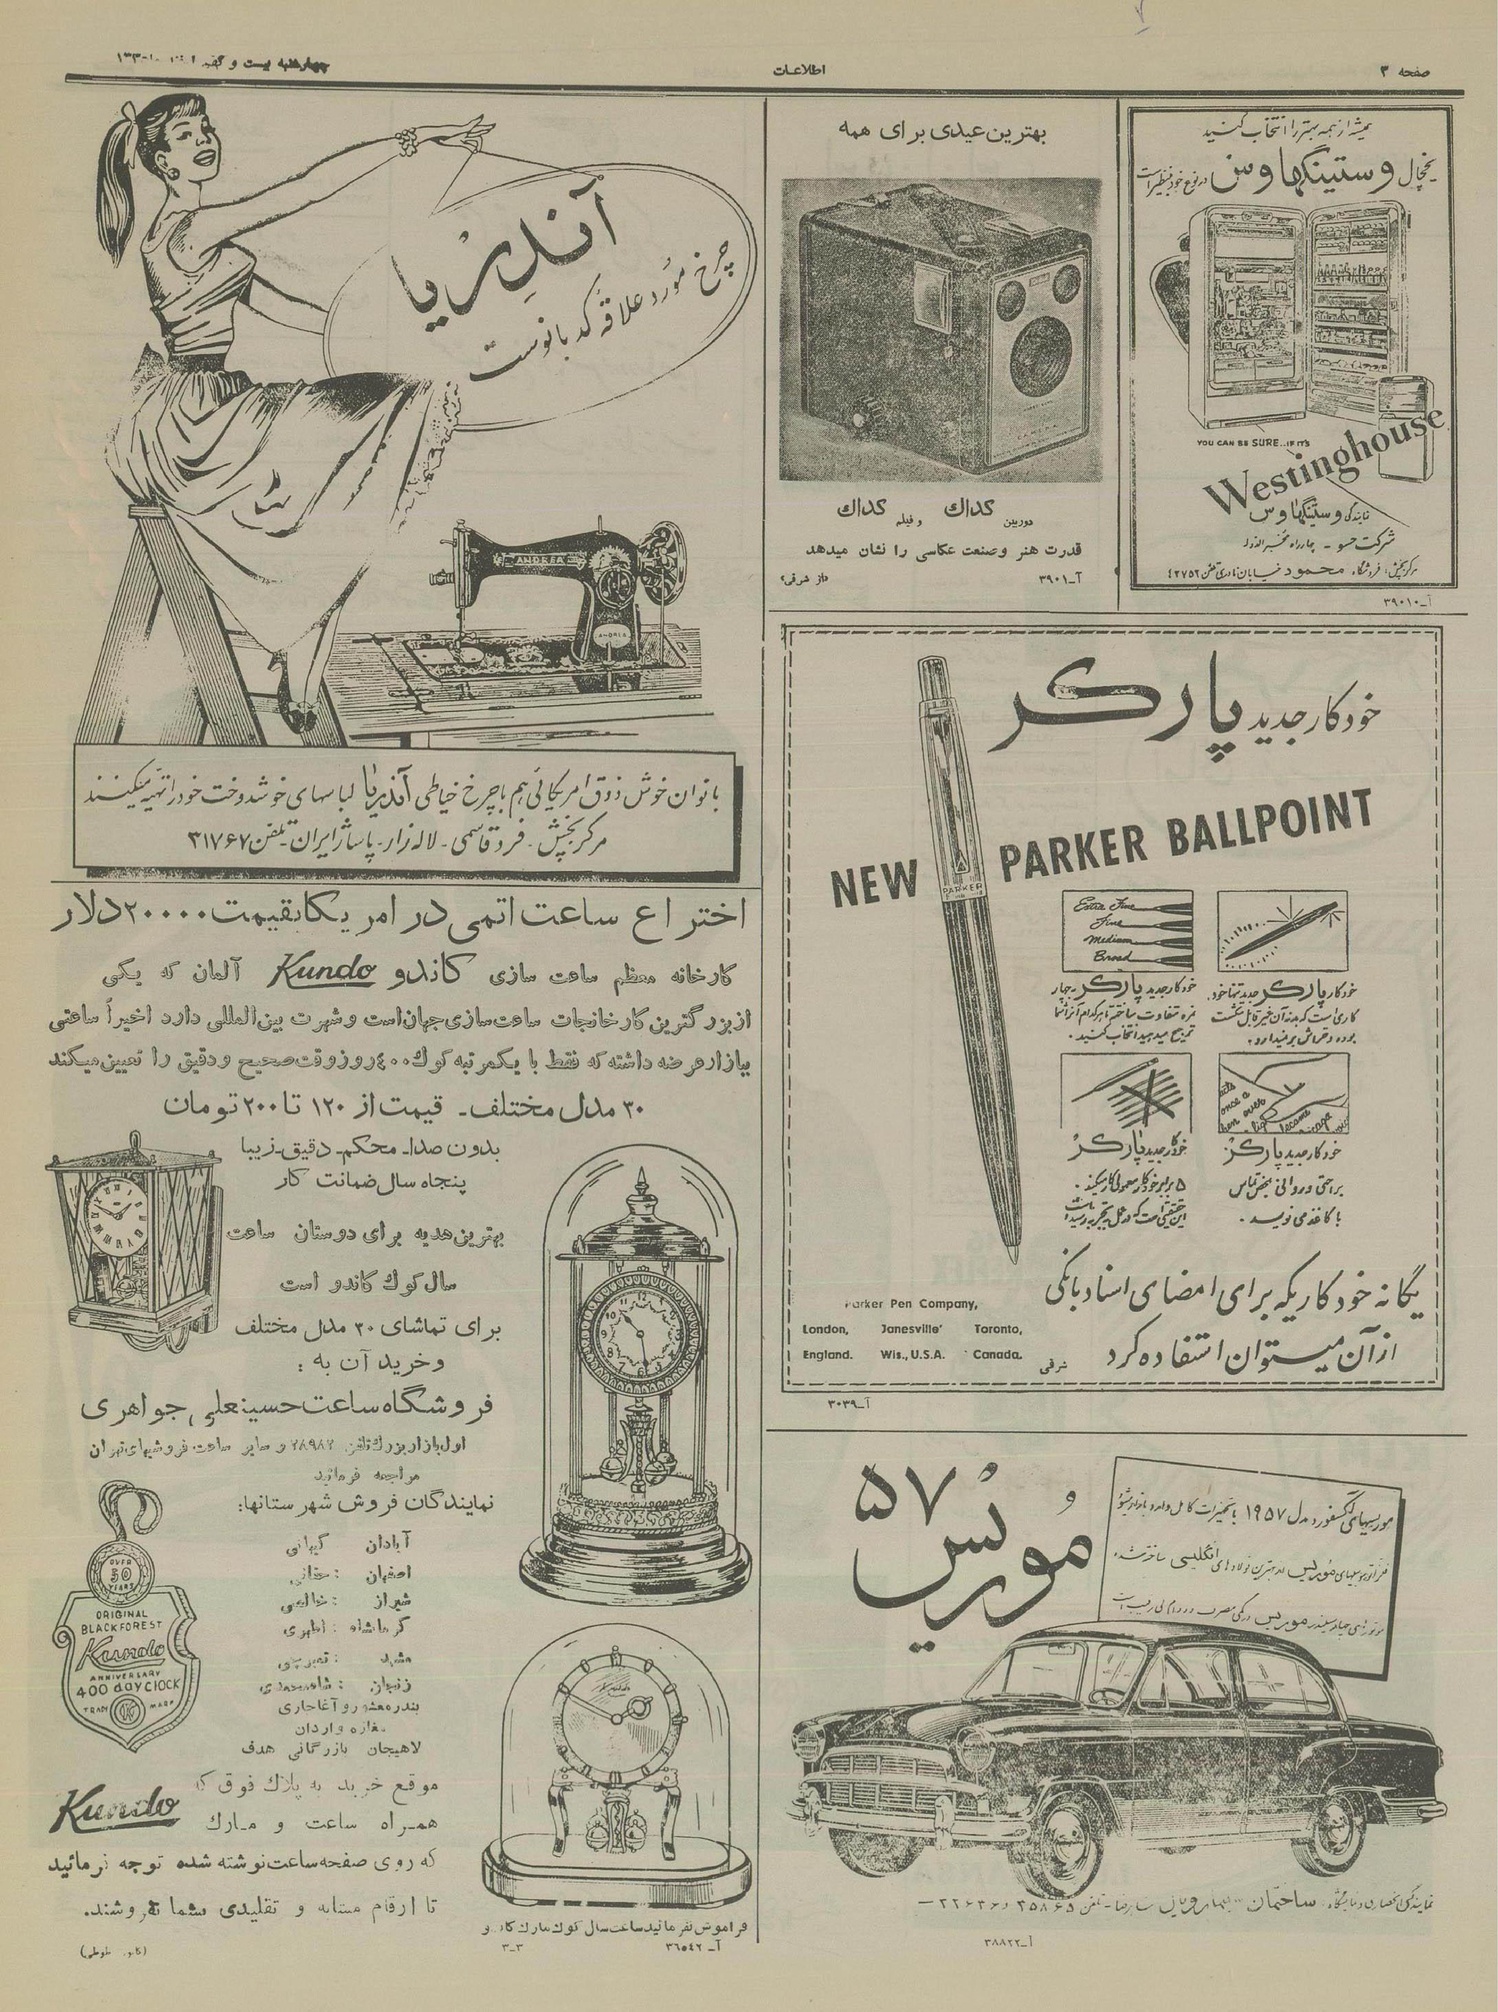 صفحه ۳
اطلاعات
چهارشنبه بیست و
همیشه از همه بهتر را انتخاب کنید
یخچال وستینگهاوس در نوع خود بینظیر است
YOU CAN BE SURE..IF IT'S
Westinghouse
نمایندگی وستینگهاوس
شرکت جسو - چهارراه مخبرالدوله
مرکز پخش: فروشگاه محمود خیابان نادری تلفن ۴۲۷۵۲
آ-۳۹۰۱۰
بهترین عیدی برای همه
دوربین کداك و فیلم کداك
قدرت هنر و صنعت عکاسی را نشان میدهد
آ-۳۹۰۱
«از شرقی»
آندریا
چرخ مورد علاقه کدبانوست
ANDREA
ANDREA
بانوان خوش ذوق امریکائی هم با چرخ خیاطی آندریا لباسهای خوشدوخت خود را تهیه میکنند
مرکز پخش - فرد قاسمی - لاله زار - پاساژ ایران - تلفن ۳۱۷۶۷
خودکار جدید پارکر
NEW PARKER BALLPOINT
PARKER
Extra Fine
Fine
Medium
Broad
خودکار پارکر جدید تنها خود
کاری است که بدنه آن غیر قابل شکست
بوده و خراش برنمیدارد.
خودکار جدید پارکر در چهار
نمره متفاوت ساخته شده تا هر کدام را که
ترجیح میدهید انتخاب کنید.
خودکار جدید پارکر
براحتی و روانی بمحض تماس
با کاغذ می نویسد.
خودکار جدید پارکر
۵ برابر خودکار معمولی کار میکند.
این حقیقتی است که در عمل بتجربه رسیده است
یگانه خودکاریکه برای امضای اسناد بانکی
از آن میتوان استفاده کرد
شرقی
Parker Pen Company,
London, Janesville' Toronto,
England. Wis., U.S.A. Canada.
آ-۳۰۳۹
اختراع ساعت اتمی در امریکا بقیمت ۲۰۰۰۰ دلار
کارخانه معظم ساعت سازی کاندو Kundo آلمان که یکی
از بزرگترین کارخانجات ساعت سازی جهان است و شهرت بین المللی دارد اخیراً ساعتی
ببازار عرضه داشته که فقط با یکمرتبه کوك ۴۰۰ روز وقت صحیح و دقیق را تعیین میکند
۳۰ مدل مختلف - قیمت از ۱۲۰ تا ۲۰۰ تومان
بدون صدا - محکم - دقیق - زیبا
پنجاه سال ضمانت کار
بهترین هدیه برای دوستان ساعت
سال کوك کاندو است
برای تماشای ۳۰ مدل مختلف
و خرید آن به :
فروشگاه ساعت حسینعلی جواهری
اول بازار بزرگ تلفن ۲۸۹۸۲ و سایر ساعت فروشیهای تهران
مراجعه فرمائید
نمایندگان فروش شهرستانها:
آبادان کیهانی
اصفهان :
شیراز :
کرماشاه : اطهری
مشهد :
زنجان :
بندر معشور و آغاجاری
مغازه واردان
لاهیجان بازرگانی هدف
موقع خرید به پلاك فوق که
همراه ساعت و مارك Kundo
که روی صفحه ساعت نوشته شده توجه فرمائید
تا ارقام مشابه و تقلیدی بشما نفروشند.
OVER
50
YEARS
ORIGINAL
BLACK FOREST
Kundo
ANNIVERSARY
400 day CLOCK
TRADE MARK
فراموش نفرمائید ساعت سال کوك مارك کاندو
آ-۳۶۵۴۲
۳-۳
مُوریس ۵۷
موریسهای آکسفورد مدل ۱۹۵۷ با تجهیزات کامل وارد
انگلیسی ساخته شده
ساختمان
تلفن ۲۵۸۶۵ و ۲۲۶۳۶
آ-۳۸۸۲۲